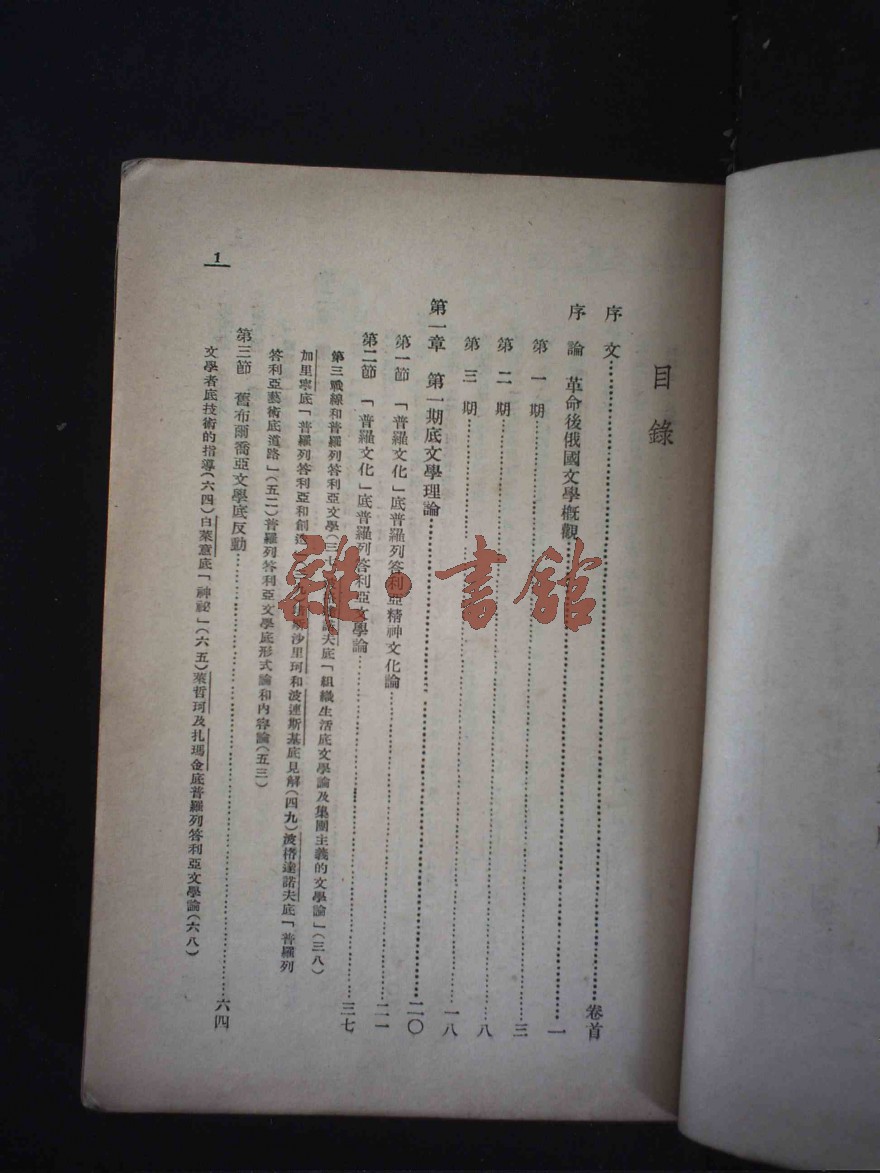 目錄
序文……卷首
序論 革命後俄國文學概觀……一
第一期……三
第二期……八
第三期……一八
第一章 第一期底文學理論……二〇
第一節 「普羅文化」底普羅列答利亞精神文化論……二一
第二節 「普羅文化」底普羅列答利亞文學論……三七
第三戰線和普羅列答利亞文學(三七)夫底「組織生活底文學論及集團主義的文學論」(三八)
加里寧底「普羅列答利亞和創造沙里珂和波連斯基底見解(四九)波格達諾夫底「普羅列
答利亞藝術底道路」(五二)普羅列答利亞文學底形式論和內容論(五三)
第三節 舊布爾喬亞文學底反動……六四
文學者底技術的指導(六四)白萊意底「神祕」(六五)萊哲珂及扎瑪金底普羅列答利亞文學論(六八)
1
雜·書館